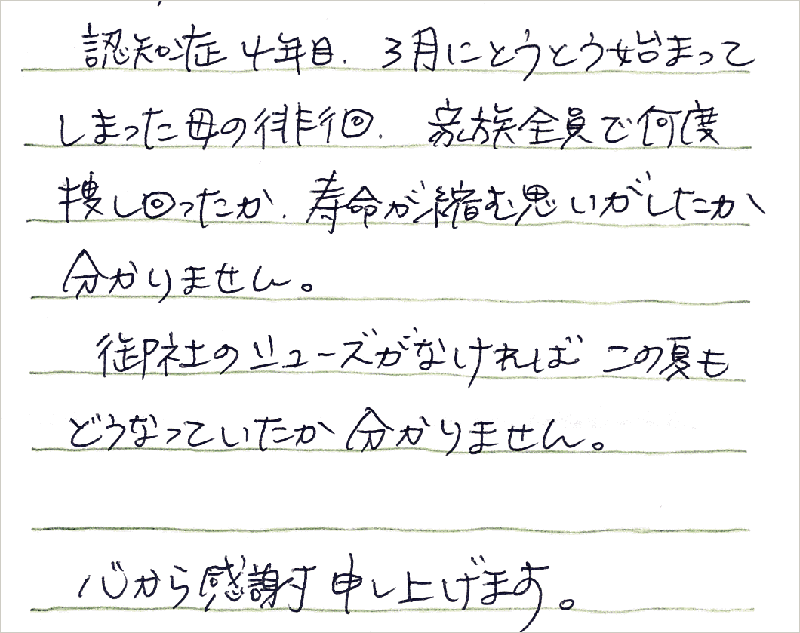 認知症4年目、3月にとうとう始まって
しまった母の徘徊、家族全員で何度
捜し回ったか、寿命が縮む思いがしたか
分かりません。
御社のシューズがなければこの夏も
どうなっていたか分かりません。
心から感謝申し上げます。